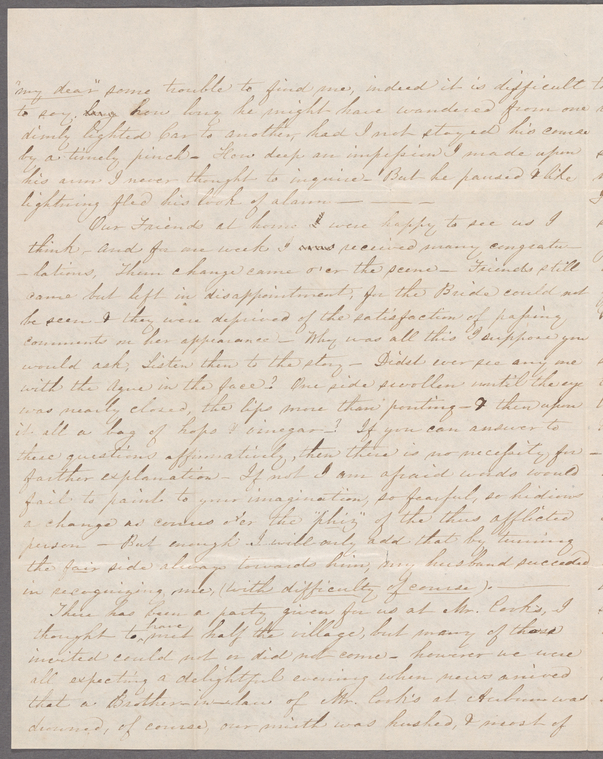 "my dear" some trouble to find me, indeed it is difficult
to say, how long he might have wandered from one
dimly lighted Car to another, had I not stayed his course
by a timely pinch - How deep an impression I made upon
his arm I never thought to inquire - But he paused & like
lightning fled his look of alarm - - -
Our Friends at home were happy to see us I
think - and for one week I received many congratu-
-lations, Then change came o'er the scene - Friends still
came but left in disappointment, for the Bride could not
be seen & they were deprived of the satisfaction of passing
comments on her appearance - Why was all this I suppose you
would ask, Listen then to the story - Didst ever see any one
with the Ague in the face? One side swollen until the eye
was nearly closed, the lips more than pouting - & then upon
it all a bag of hops & vinegar -? If you can answer to
these questions affirmatively, then there is no necessity for
farther explanation - If not I am afraid words would
fail to paint to your imagination, so fearful, so hidious
a change as comes o'er the "phiz" of the thus afflicted
person - But enough I will only add that by turning
the fair side always towards him, my husband succeeded
in recognizing me, (with difficulty of course) -
There has been a party given for us at Mr. Cook's, I
thought to have met half the village, but many of those
invited could not or did not come - however we were
all expecting a delightful evening when news arrived
that a Brother-in-law of Mr. Cook's at Auburn was
drowned, of course, our mirth was hushed, & most of